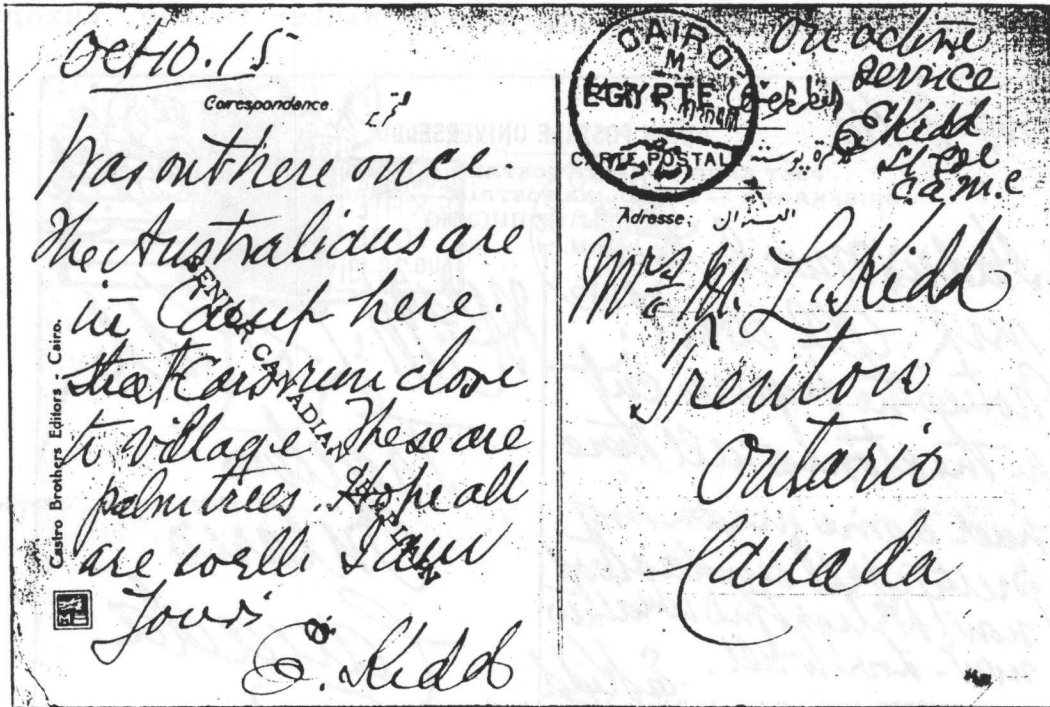 Oct 10. 15
Correspondence
Was out here once.
The Australians are
in Camp here.
Street Cars run close
to village. These are
palm trees. Hope all
are well. I am
Yours
E. Kidd
Castro Brothers Editors. Cairo.
SENIOR CANADIAN CHAPLAIN
CAIRO
M
EGYPTE
CARTE POSTALE
Adresse
On active
service
E Kidd
Lt Col
C.A.M.C
Mrs M. L. Kidd
Trenton
Ontario
Canada